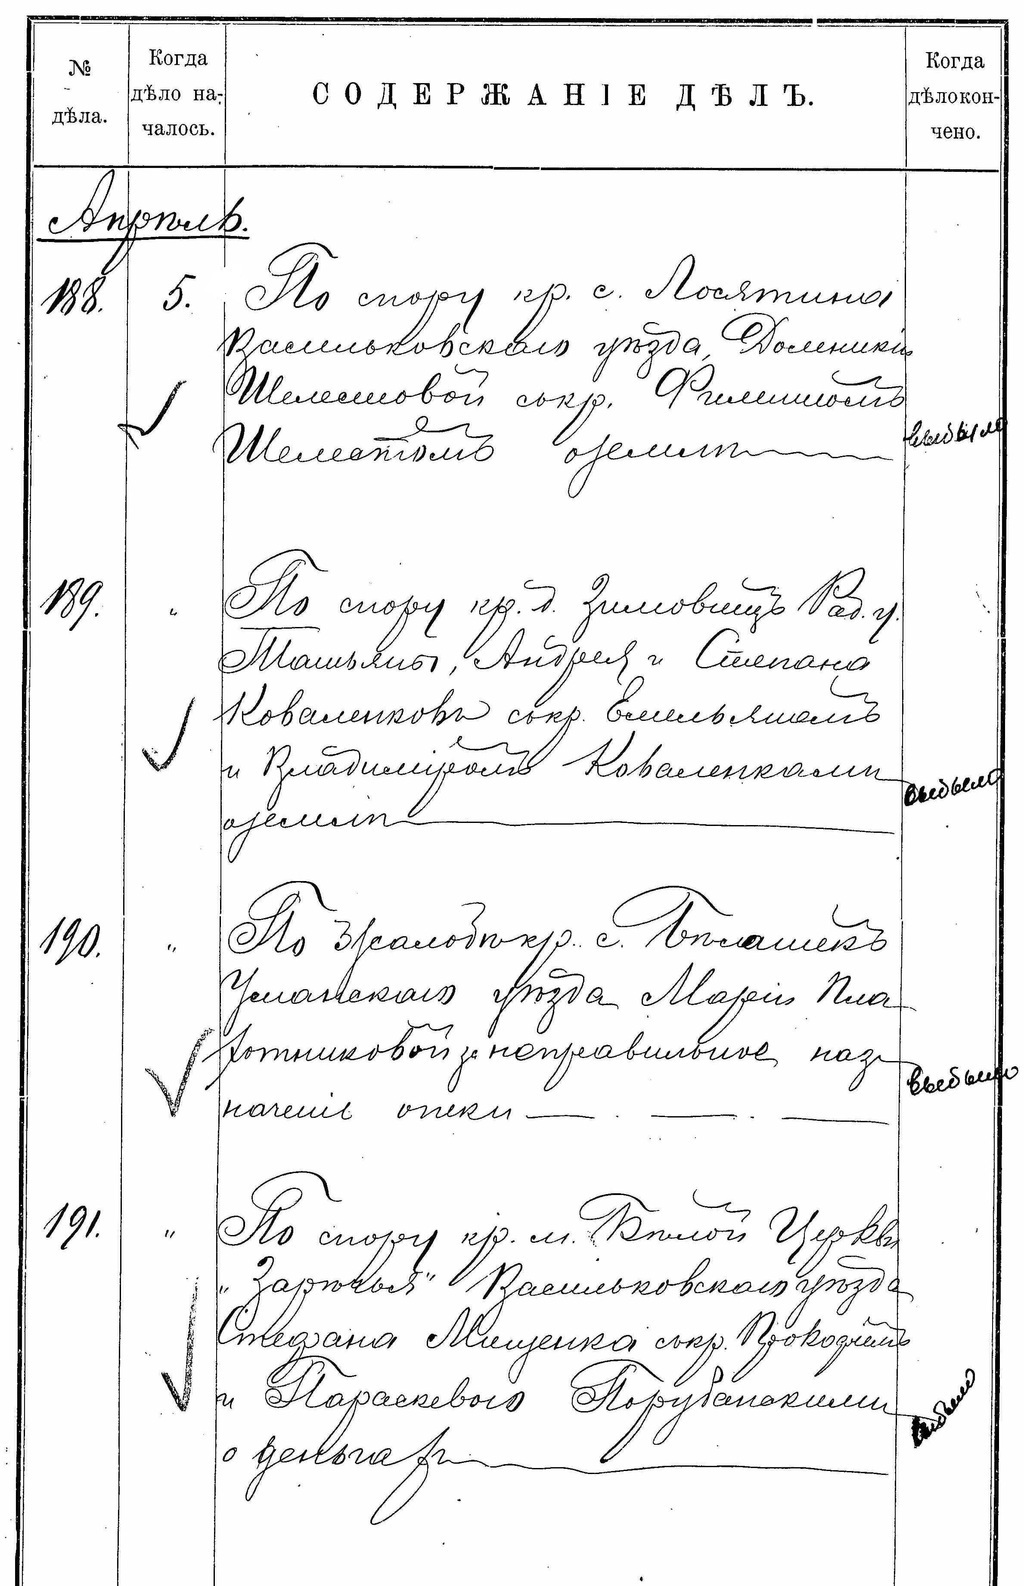 № дѣла.
Когда дѣло на-чалось.
СОДЕРЖАНІЕ ДѢЛЪ.
Когда дѣло кон-чено.
Апрѣль.
188. 5. По спору кр. с. Лосятина
Васильковскаго уѣзда, Доменикіи
Шелестовой съ кр. Филиппомъ
Шелестомъ о земли
выбыло
189. " По спору кр. д. Зимовищъ Рад. у.
Татьяны, Андрея и Степана
Коваленковъ съ кр. Емельяномъ
и Владиміромъ Коваленками
о земли
выбыло
190. " По жалобѣ кр. с. Бѣлашекъ
Уманскаго уѣзда Маріи Пла-
хотниковой за неправильное наз-
наченіе опеки
выбыло
191. " По спору кр. м. Бѣлой Церкви
"Зарѣчья" Васильковскаго уѣзда
Стефана Мищенка съ кр. Прокофіемъ
и Параскевою Порубанскими
о деньгахъ
выбыло